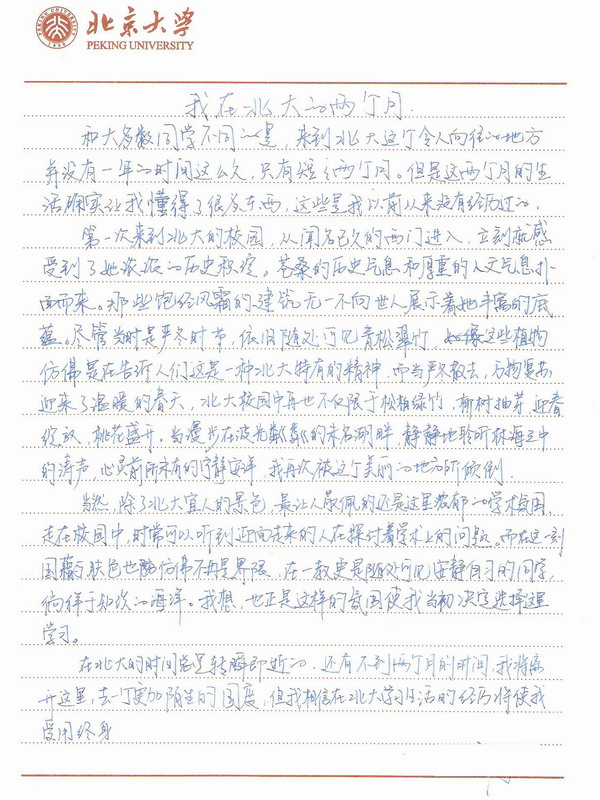 北京大学
PEKING UNIVERSITY
我在北大的两个月.
和大多数同学不同的是，来到北大这个令人向往的地方
并没有一年的时间这么久，只有短短两个月。但是这两个月的生
活确实让我懂得了很多东西，这些是我以前从来没有经历过的.
第一次来到北大的校园，从闻名已久的西门进入，立刻就感
受到了她浓浓的历史积淀。苍桑的历史气息和厚重的人文气息扑
面而来。那些饱经风霜的建筑无一不向世人展示着她丰富的底
蕴。尽管当时是严冬时节，依旧随处可见青松翠竹，这些植物
仿佛是在告诉人们这是一种北大特有的精神，而当严冬散去，万物复苏
迎来了温暖的春天，北大校园中再也不仅限于松柏绿竹，柳树抽芽，迎春
绽放，桃花盛开。当漫步在波光粼粼的未名湖畔，静静地聆听林海之中
的涛声，心灵前所未有的宁静安详，我再次被这个美丽的地方所倾倒.
当然，除了北大宜人的景色，最让人敬佩的还是这里浓郁的学术氛围，
走在校园中，时常可以听到迎面走来的人在探讨着学术上的问题。而在这一刻
国籍与肤色也仿佛不再是界限，在一教更是随处可见安静自习的同学，
徜徉于知识的海洋。我想，也正是这样的氛围使我当初决定选择这里
学习。
在北大的时间总是转瞬即逝的，还有不到两个月的时间，我将离
开这里，去一个更加陌生的国度，但我相信在北大学习生活的经历将使我
受用终身